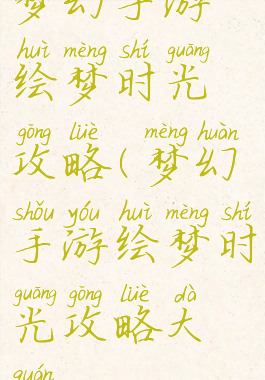 梦幻手游
huì mèng shí guāng
绘梦时光
gōng lüè mèng huàn
攻略(梦幻
shǒu yóu huì mèng shí
手游绘梦时
guāng gōng lüè dà
光攻略大
quán